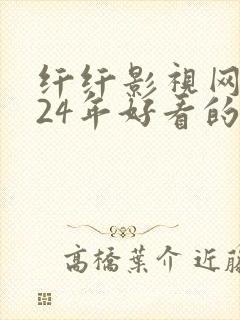 纤纤影视网
24年好看的
高橋葉介 近藤